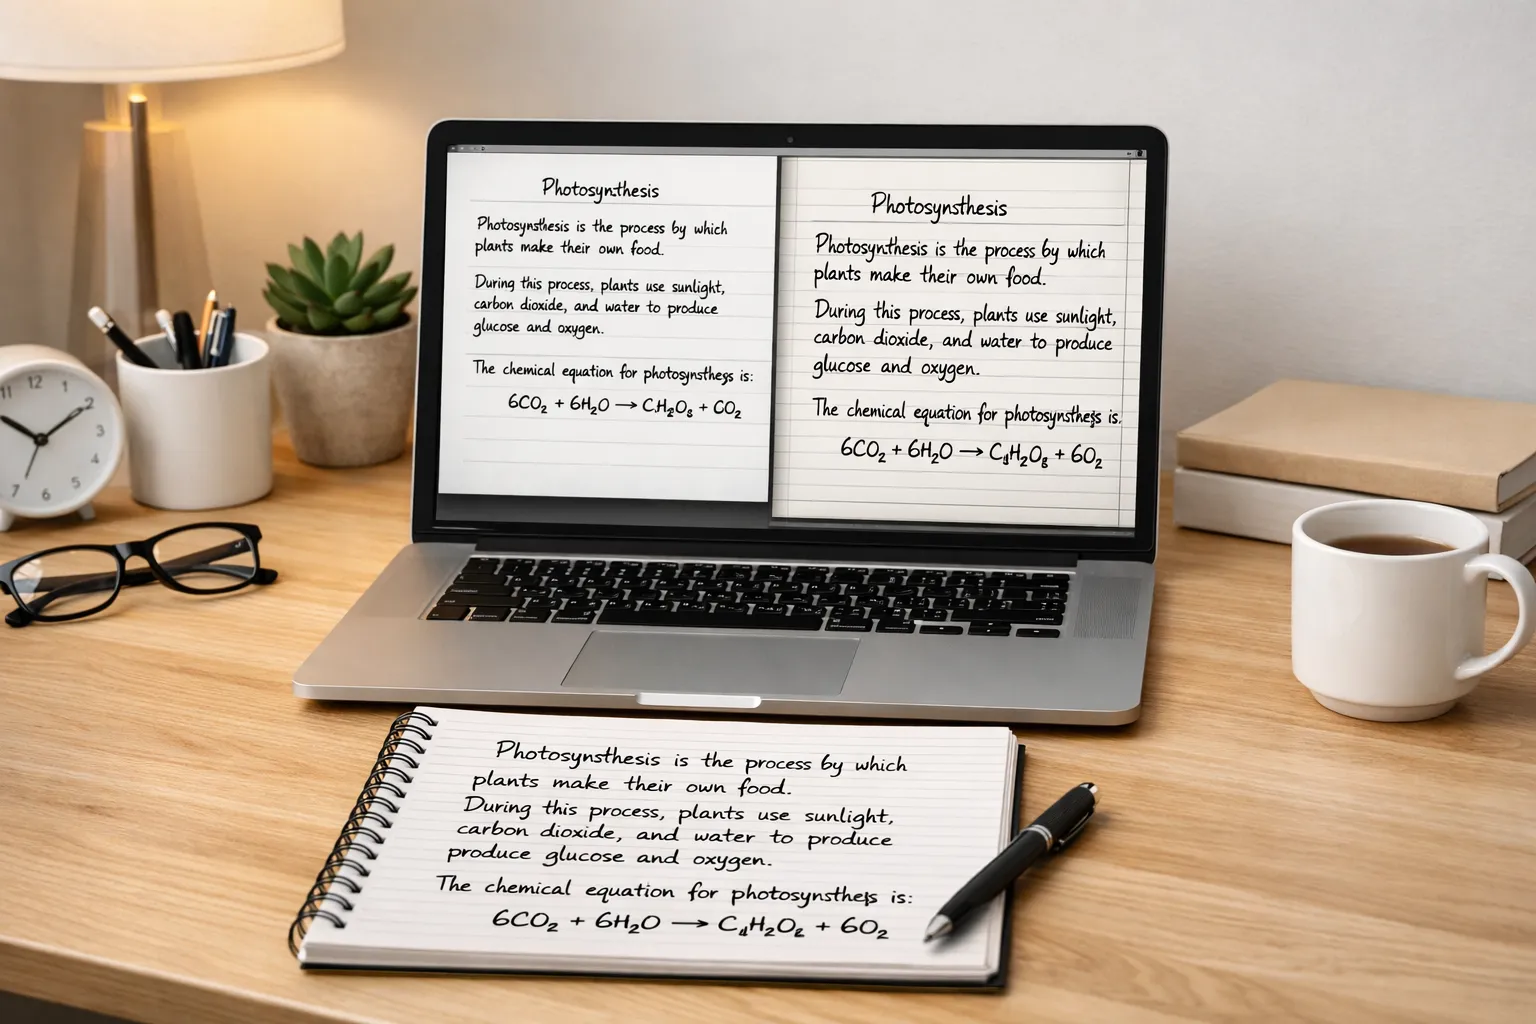 Photosynthesis
Photosynsthesis is the process by which
plants make their own food.
During this process, plants use sunlight,
carbon dioxide, and water to produce
glucose and oxygen.
The chemical equation for photosynsthegs is:
6CO₂ + 6H₂O → C.H₂O₈ + CO₂
Photosynsthesis
Photosynsthesis is the process by which
plants make their own food.
During this process, plants use sunlight,
carbon dioxide, and water to produce
glucose and oxygen.
The chemical equation for is.
6CO₂ + 6H₂O → C₄H₂O₈ + 6O₂
Photosynsthesis is the process by which
plants make their own food.
During this process, plants use sunlight,
carbon dioxide, and water to produce
produce glucose and oxygen.
The chemical equation for is:
6CO₂ + 6H₂O → C₄H₂O₂ + 6O₂
11 12 1
2
3
4
5
6
7